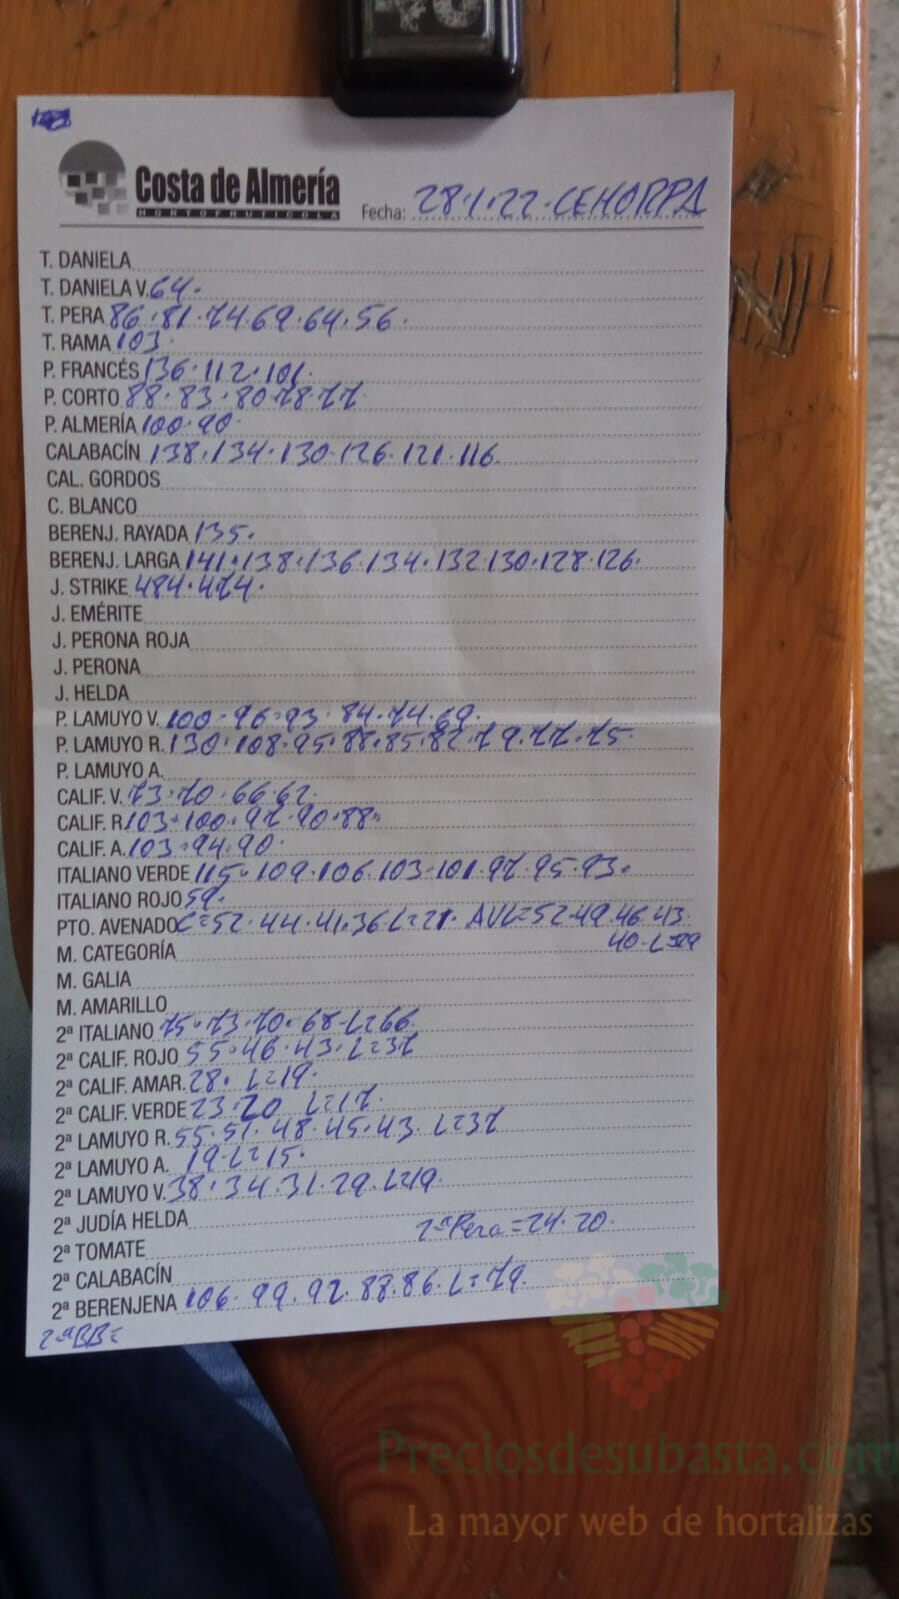 Costa de Almería
HORTOFRUTICOLA
Fecha: 28.1.22.CEHORPA
T. DANIELA
T. DANIELA V. 64.
T. PERA 86.81.74.69.64.56.
T. RAMA 103.
P. FRANCÉS 136.112.101.
P. CORTO 88.83.80.78.77
P. ALMERÍA 100.90.
CALABACÍN 138.134.130.126.121.116
CAL. GORDOS
C. BLANCO
BERENJ. RAYADA 135.
BERENJ. LARGA 141.138.136.134.132.130.128.126.
J. STRIKE 484.474.
J. EMÉRITE
J. PERONA ROJA
J. PERONA
J. HELDA
P. LAMUYO V. 100.96.93.84.74.69.
P. LAMUYO R. 130.108.95.88.85.82.79.77.75.
P. LAMUYO A.
CALIF. V. 73.70.66.62.
CALIF. R. 103.100.97.90.88.
CALIF. A. 103.94.90.
ITALIANO VERDE 115.109.106.103.101.97.95.93.
ITALIANO ROJO 59.
PTO. AVENADO C=52.44.41.36.L=27. AVL=52.49.46.43.
40.L=29
M. CATEGORÍA
M. GALIA
M. AMARILLO
2ª ITALIANO 75.73.70.68.L=66
2ª CALIF. ROJO 55.46.43.L=37
2ª CALIF. AMAR. 28. L=19.
2ª CALIF. VERDE 23.20 L=17.
2ª LAMUYO R. 55.51.48.45.43. L=37
2ª LAMUYO A. 19.L=15.
2ª LAMUYO V. 38.34.31.29.L=19.
2ª JUDÍA HELDA
2ªPera=24.20.
2ª TOMATE
2ª CALABACÍN
2ª BERENJENA 106.99.92.88.86.L=79.
2ªBB=
Preciosdesubasta.com
La mayor web de hortalizas